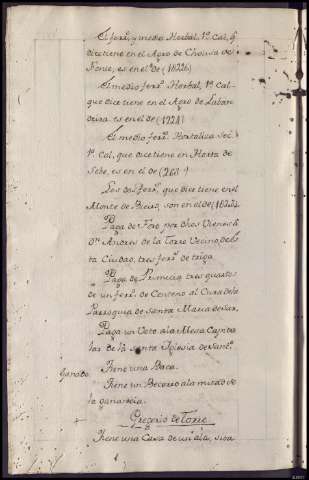 El ferr.º y medio Hortal, 1.ª Cal. q.
dice tiene en el Agro de Chousa de
Fonte, es en el de (1822)
El medio ferr.º Hortal, 1.ª Cal.
que dice tiene en el Agro de Laban
deira. es en el de (1224)
El medio ferr.º Hortaliza Sec.
1.ª Cal, que dice tiene en Horta de
Sebe, es en el de (261)
Los dos ferr.s que dice tiene en el
Monte de Bieus, son en el de
Paga de Foro por dhos Vienes à
D.n Andres de la Torre Vecino de la
ta Ciudad, tres ferr.s de trigo.
Paga de Primicia tres quartos
de un ferr.º de Centeno al Cura de la
Parroquia de Santa Maria de Sar.
Paga un Voto a la Mesa Capitu
lar de la Santa Iglesia de Sant.º
Ganado. Tiene una Baca.
Tiene un Becerro a la mitad de
la ganancia.
Gregorio de Torre
Tiene una Casa de un alto, sita